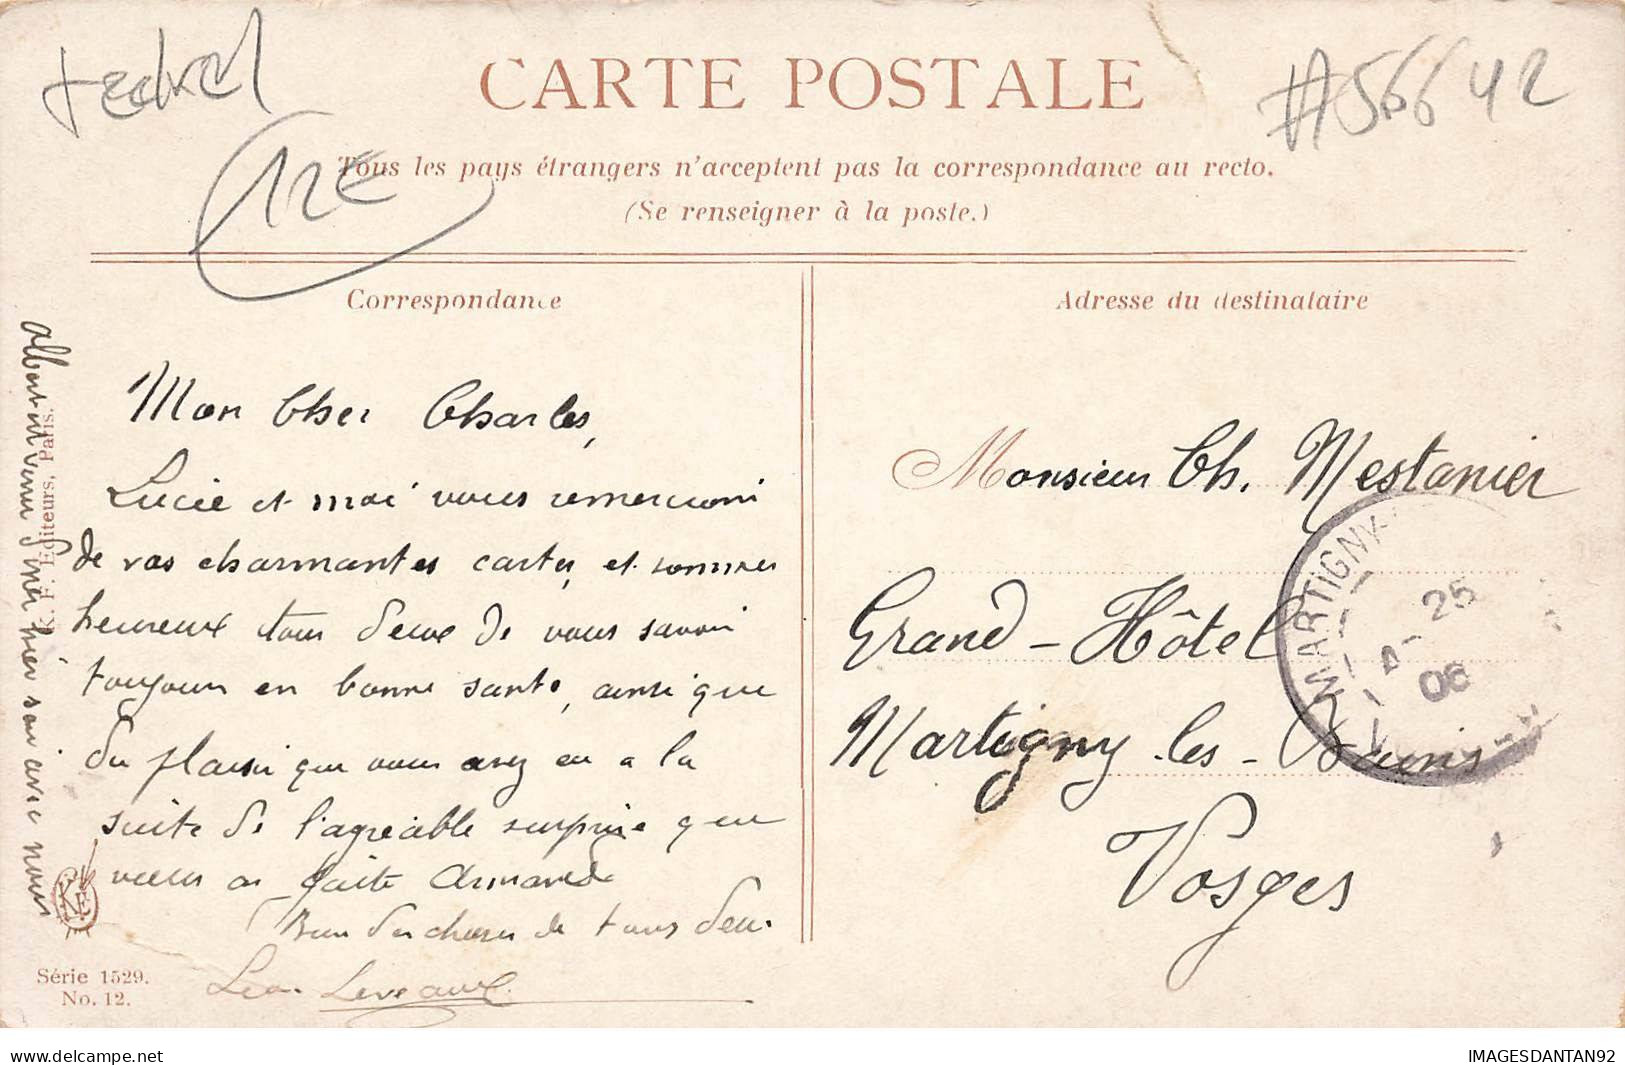 #56642
12€
CARTE POSTALE
Tous les pays étrangers n'acceptent pas la correspondance au recto.
(Se renseigner à la poste.)
Correspondance
Mon Cher Charles,
Lucie et moi vous remercions
de vos charmantes cartes, et sommes
heureux tous deux de vous savoir
toujours en bonne santé, ainsi que
du plaisir que vous avez eu a la
suite de l'agréable surprise que
vous a faite Armande
Bien des choses de tous deux
Léon Leveaux
Albert est venu hier soir avec nous
K. F. Editeurs, Paris.
KF
Série 1529.
No. 12.
Adresse du destinataire
Monsieur Ch. Mestanier
Grand-Hôtel
Martigny-les-Bains
Vosges
MARTIGNY
4-25
06
delcampe.net
IMAGESDANTAN92